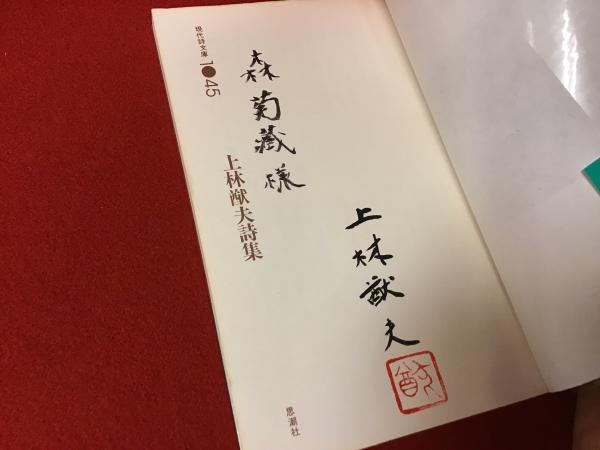 現代詩文庫
1●45
上林猷夫詩集
森菊蔵様
上林猷夫
思潮社